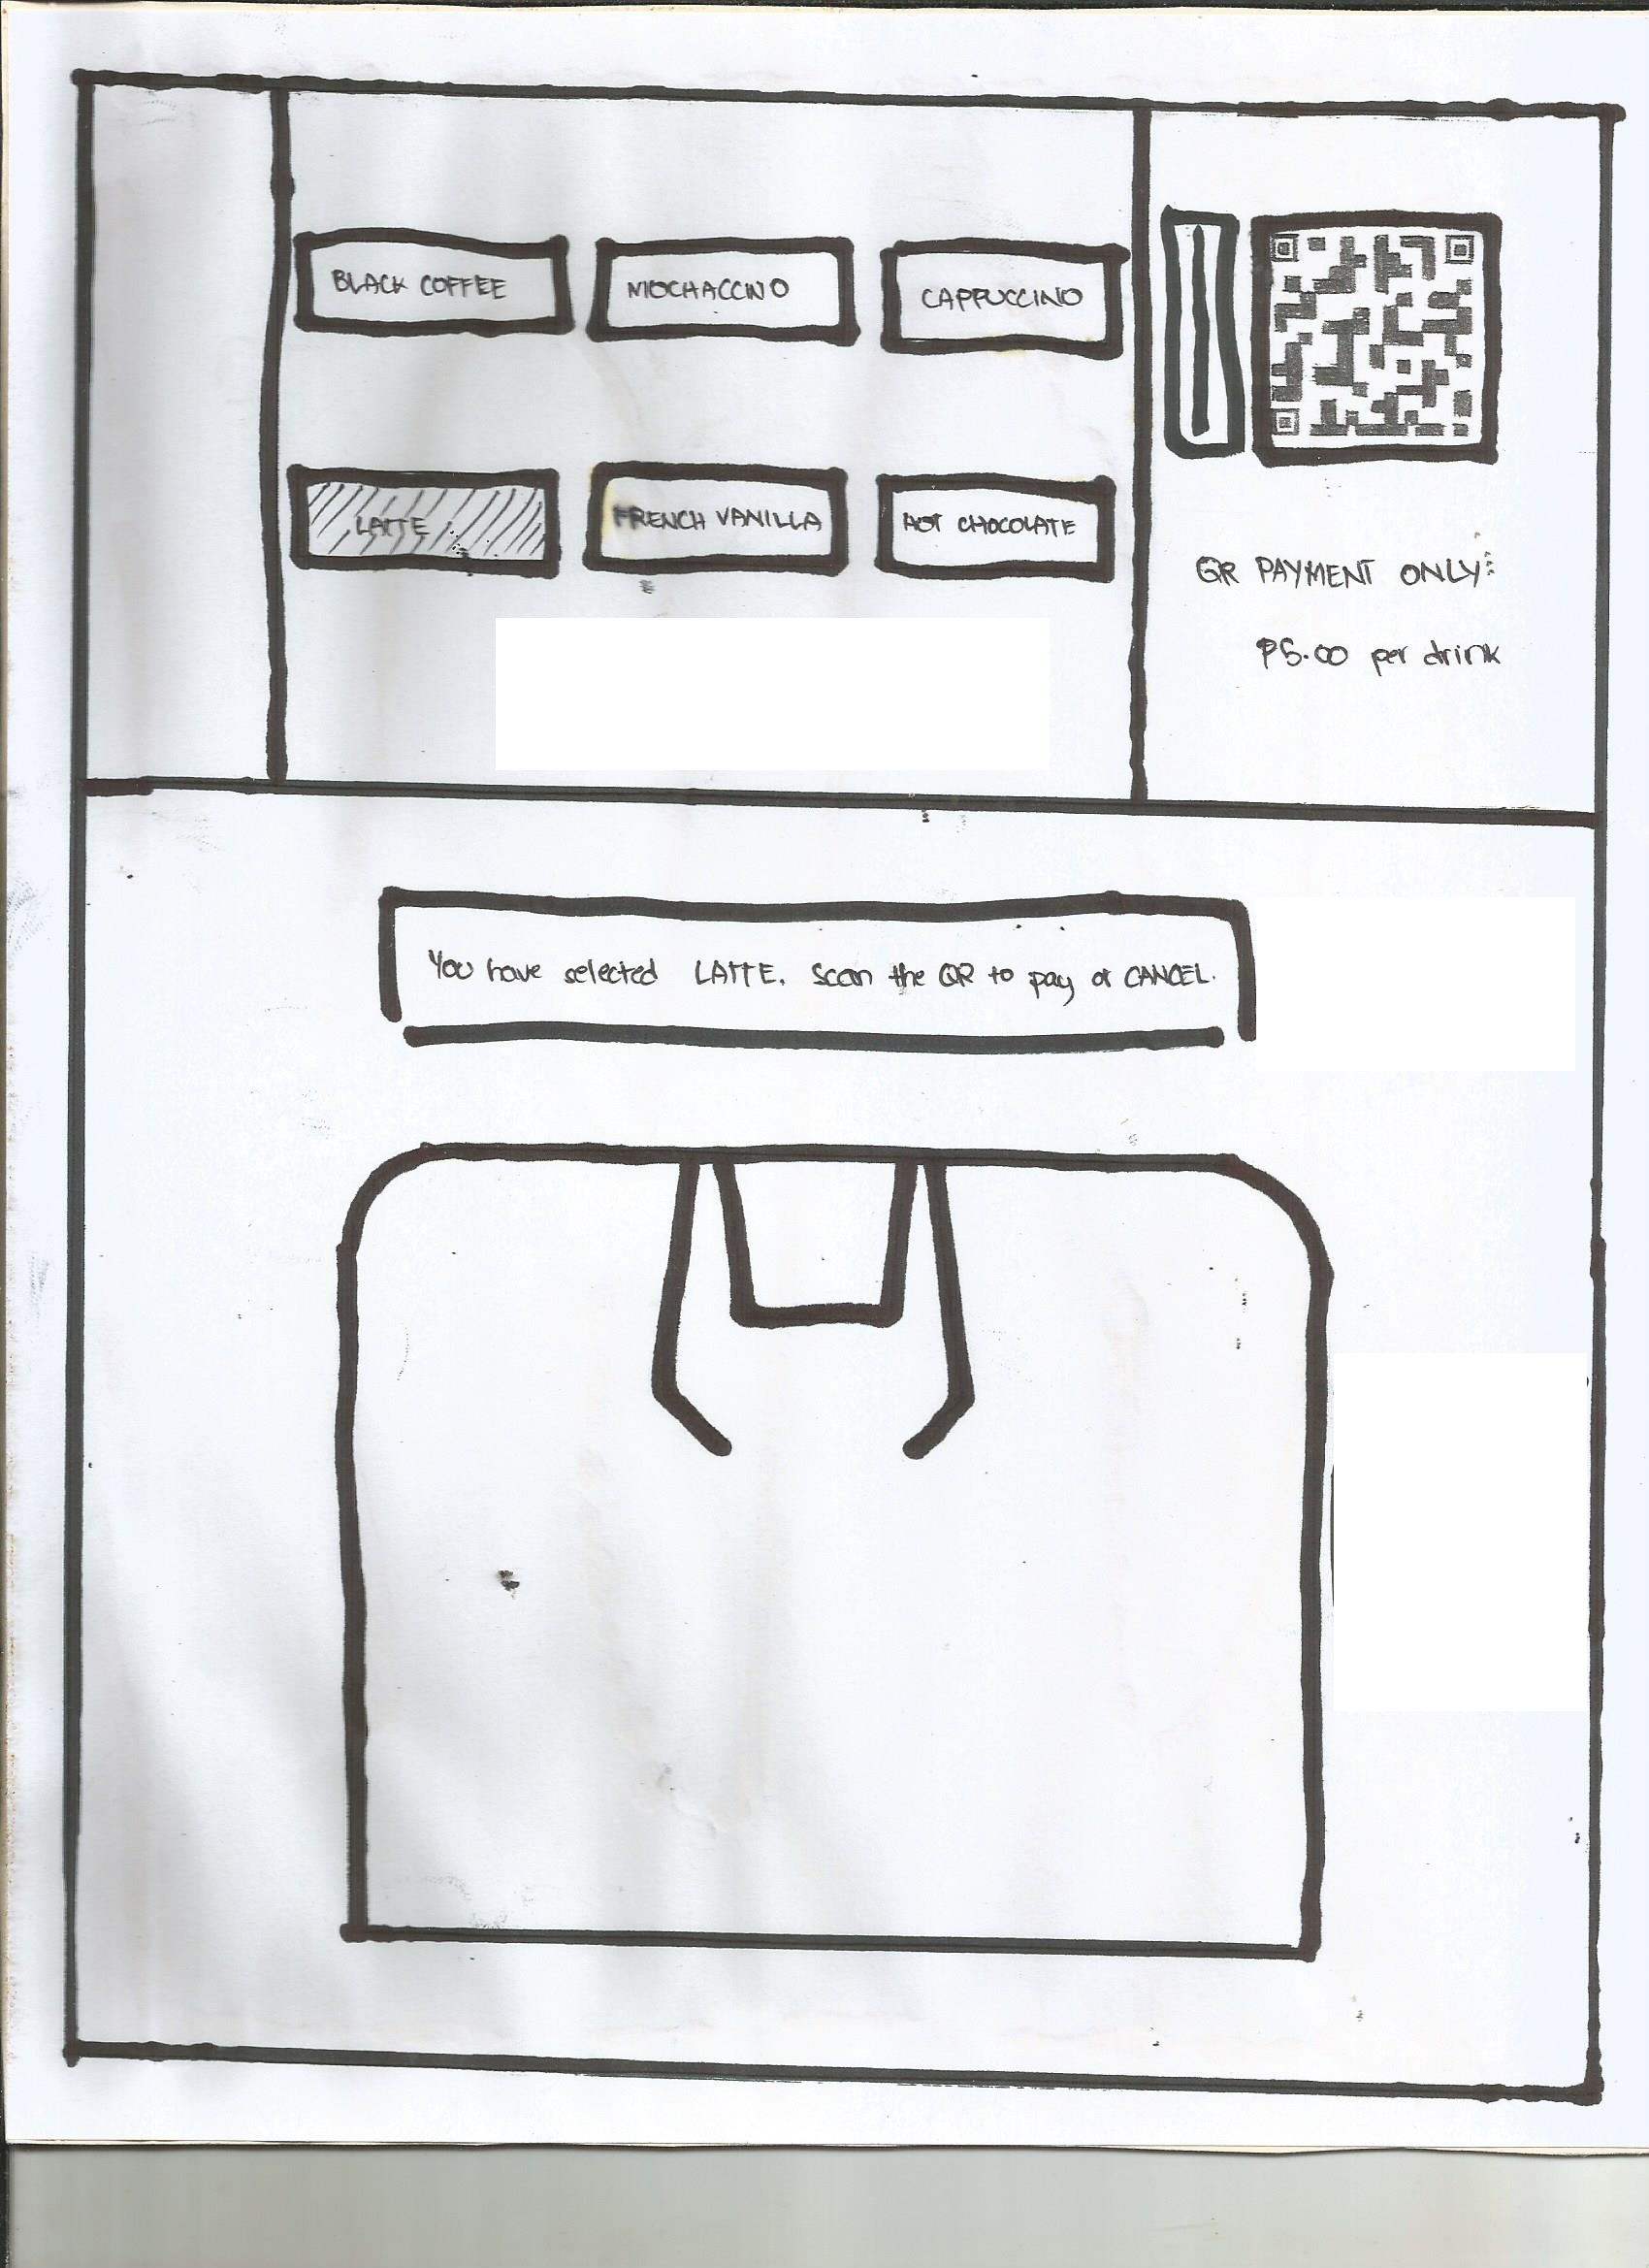 BLACK COFFEE
MOCHACCINO
CAPPUCCINO
LATTE
FRENCH VANILLA
HOT CHOCOLATE
QR PAYMENT ONLY:
₱5.00 per drink
You have selected LATTE. Scan the QR to pay or CANCEL.